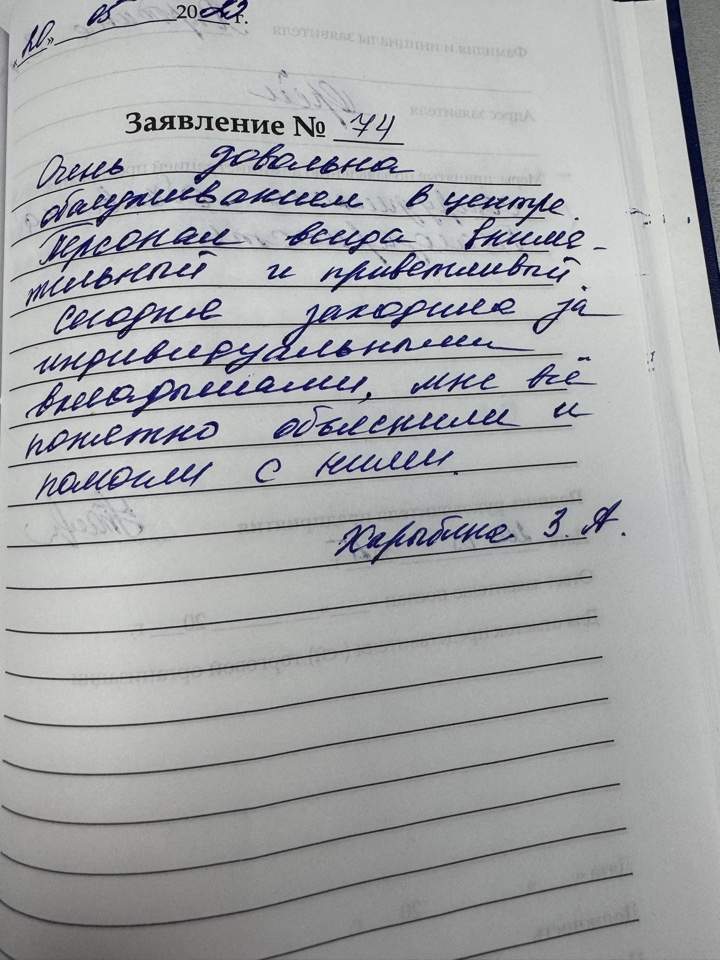 «20» 05 2022 г.
Заявление № 74
Очень довольна
обслуживанием в центре.
Персонал всегда внима-
тельный и приветливый.
Сегодня заходила за
индивидуальными
вкладышами, мне всё
понятно объяснили и
помогли с ними.
Харыбина З. А.